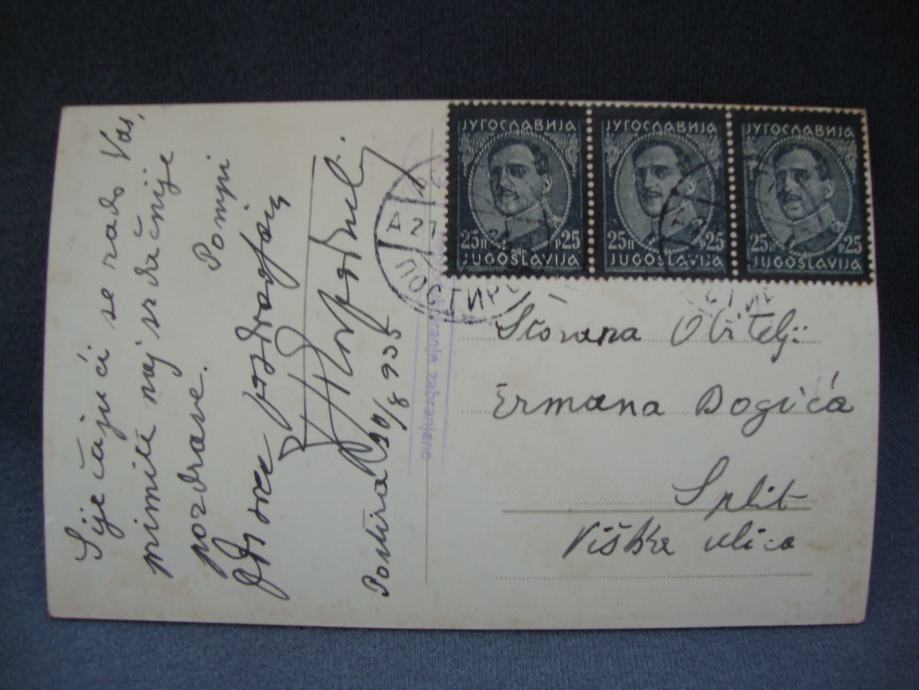 Sjećajući se rado Vas,
primite naj srdačnije
pozdrave. Pompi
Od srca pozdravlja
Postira 20/8 935
ЈУГОСЛАВИЈА
25П Р25
JUGOSLAVIJA
ЈУГОСЛАВИЈА
25П Р25
JUGOSLAVIJA
ЈУГОСЛАВИЈА
25П Р25
JUGOSLAVIJA
ПОСТИРЕ
zabranjeno
Štovana Obitelji
Ermana Dogića
Split
Viška ulica